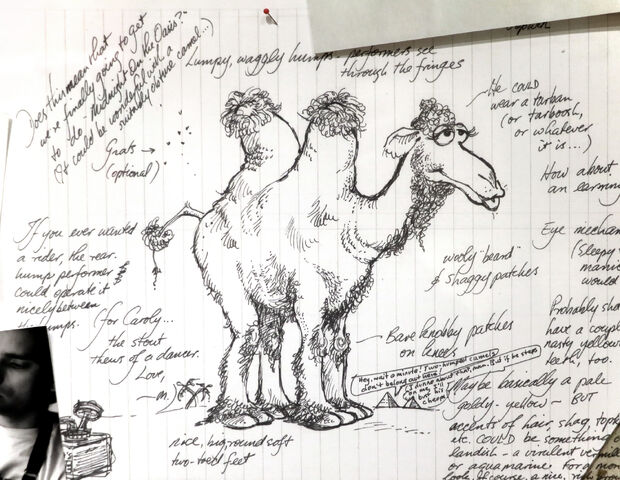 Does this mean that
we're finally going to get
to do "Midnight On the Oasis"?
(It could be wonderful with a
suitably obscure camel...)
Lumpy, waggly humps - performers see
through the fringes
Gnats →
(optional)
He could
wear a turban
(or tarboosh,
or whatever
it is...)
How about
an
If you ever wanted
a rider, the rear
hump performer
could operate it
nicely between
humps.
(for Caroly...
the stout
thews of a dancer.
Love,
-m.
Eye
(Sleepy
would
wooly "beard"
& shaggy patches
Probably
have a couple
nasty yellow
teeth, too.
Bare knobbly patches
on knees
Hey, wait a minute! Two-humped camels
don't belong out here!
but his
nice, big, round soft
two-toed feet
Maybe basically a pale
goldy-yellow - BUT
accents of hair, shag,
etc. COULD be something
landish - a virulent
or aquamarine. For a
look, of course, a nice, rich